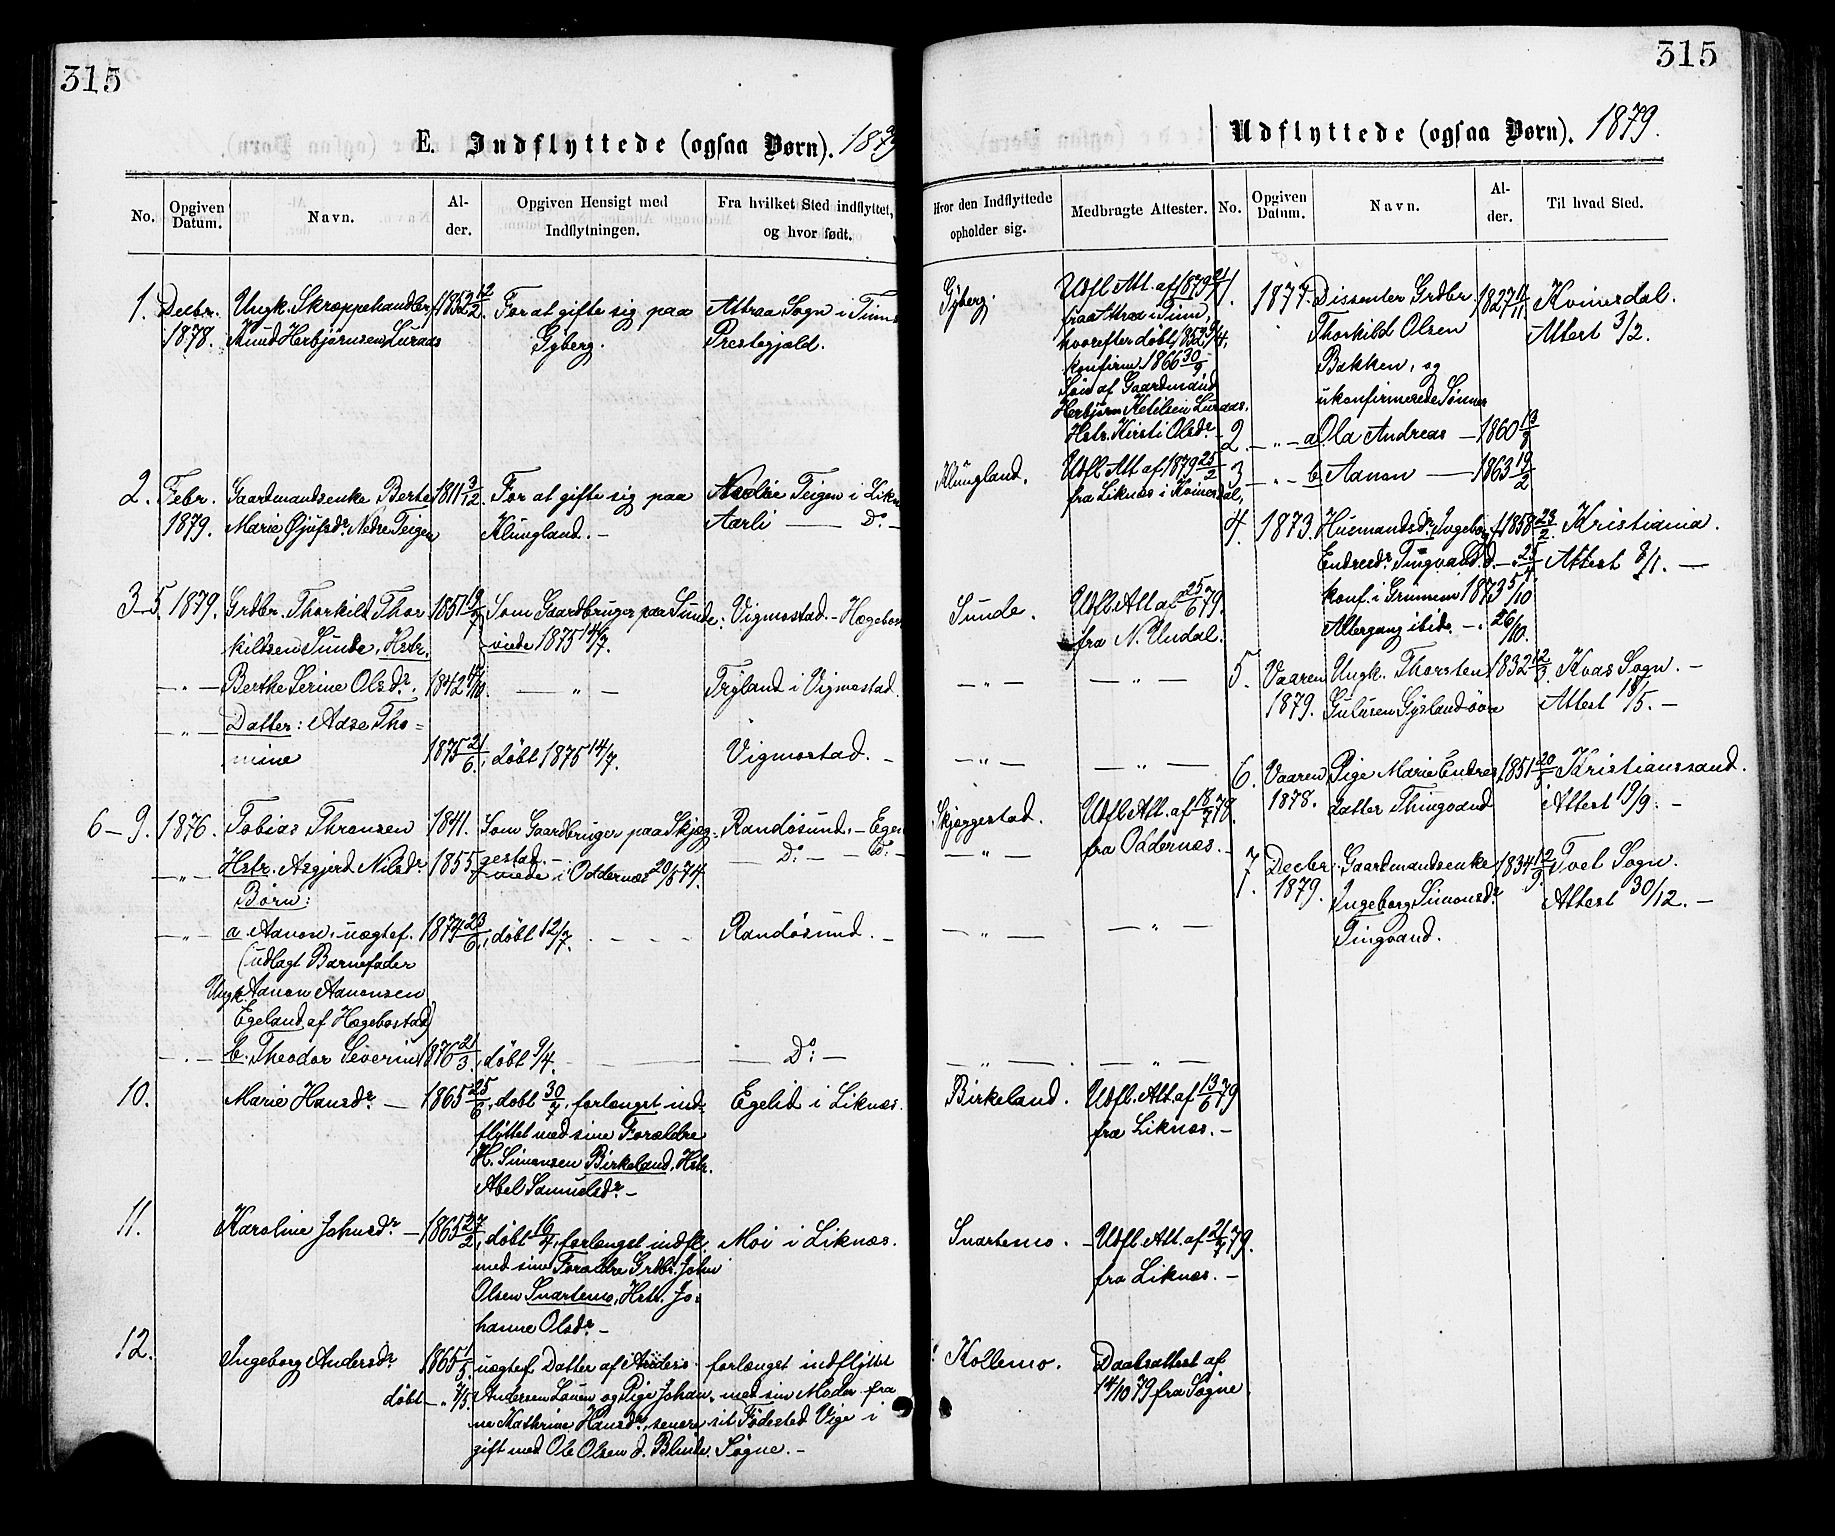 315
E. Indflyttede (ogsaa Børn). 1879
No. Opgiven Datum. Navn. Alder. Opgiven Hensigt med Indflytningen. Fra hvilket Sted indflyttet, og hvor født.
1. Decbr. Ungk. Skræppehandler 1852 12/2 For at gifte sig paa Attraa Sogn i Tinns
1878. Knud Herbjørnsen Luraas Gyberg. Prestegjæld.
2. Febr. Gaardmandsenke Berte 1811 3/12 For at gifte sig paa Nedre Teigen i Likn
1879. Marie Øjufsdr. Nedre Teigen Klungland. – Aarli — Do. –
3–5. 1879. Grdbr. Thorkild Thor 1851 Som Gaardbruger paa Sunde: Vigmostad. – Hægebost
kildsen Sunde, Hstr. viede 1875 14/7.
– „ – Berthe Serine Olsdr. 1842 – „ – Tryland i Vigmostad.
– „ – Datter: Adse Tho=
mine 1875 21/6, døbt 1875 14/7. Vigmostad. –
6–9. 1876. Tobias Thronsen 1841. Som Gaardbruger paa Skjæg- Randøsund. – Ege
– „ – Hstr. Asgjerd Nilsdr. 1855 gestad. – — Do: – – Do: –
Børn: viede i Oddernes 20/5 74.
– „ – a Aanon, uægtef. 1874 23/6, døbt 12/7. – – – Randøsund. –
(udlagt Barnefader
Ungk. Aanon Aanonsen
Egeland af Hægebostad)
– „ – b. Theodor Severin 1876 21/3, døbt 9/4. — Do: –
10. Marie Hansdr. — 1865 25/6, døbt 30/7, forlængst ind= Egelid i Liknæs.
flyttet med sine Forældre
H. Simonsen Birkeland, Hstr.
Abel Samuelsdr. –
11. Karoline Johnsdr. – 1865 27/2, døbt 16/4, forlængst indfl. Moi i Liknæs.
med sine Forældre Grdbr. John
Olsen Snartemo, Hstr. Jo=
hanne Olsdr. –
12. Ingeborg Andersdr. 1865 1/5 uægtef. Datter af Anders forlængst indflyttet
døbt – „ 7/5 Andersen Lauen og Pige Johan= med sin Moder fra
ne Kathrine Hansdr., senere sit Fødested Vige i
gift med Ole Olsen d. Søgne. –
315
Udflyttede (ogsaa Børn). 1879.
Hvor den Indflyttede opholder sig. Medbragte Attester. No. Opgiven Datum. Navn. Alder. Til hvad Sted.
Gyberg. Udfl. Att. af 1879 21/1
fra Attraa i Tinn,
hvorefter døbt 1852 9/4,
konfirm. 1866 30/9
Søn af Gaardmand
Herbjørn Ketilsen Luraas,
Hstr. Kirsti Olsdr. –
Klungland. Udfl. Att. af 1879 25/2
fra Liknæs i Kvinesdal,
Sunde. Udfl. Att. af 25/6 79.
fra N. Undal.
– „ – — „ —
– „ – — „ —
Skjeggestad. Udfl. Att. af 18/7 78.
– „ – fra Oddernæs. –
– „ – – „ –
– „ – — „ —
Birkeland. Udfl. Att. af 13/6 79
fra Liknæs. –
Snartemo. – Udfl. Att. af 21/7 79.
fra Liknæs. –
Kollemo. Daabsattest af
14/10 79 fra Søgne
1. 1877. Dissenter Grdbr. 1827 11/11 Kvinesdal.
Thorkild Olsen Attest 3/2.
Bakken, og
ukonfirmerede Sønner
2. – „ – a Ola Andreas – 1860 13/8
3 – „ – b Aanon — 1863 19/2
4. 1873. Husmandsdr. Ingeborg f. 1858 23/2. Kristiania.
Endresdr. Tingvand d. – „ 25/4 Attest 8/1. —
konf. i Grummem 1873 5/10
Altergang ibid. – „ 26/10.
5. Vaaren Ungk. Thorsten 1832 12/3. Kvas Sogn. –
1879. Gulufsen Gysland øvre Attest 18/5. –
6. Vaaren Pige Marie Endres 1851 20/3 Kristianssand.
1878. datter Thingvand Attest 19/9. –
7 Decbr. Gaardmandsenke 1834 12/9. Tvet Sogn.
1. 1879. Ingeborg Simonsdr. Attest 30/12. –
Tingvand.